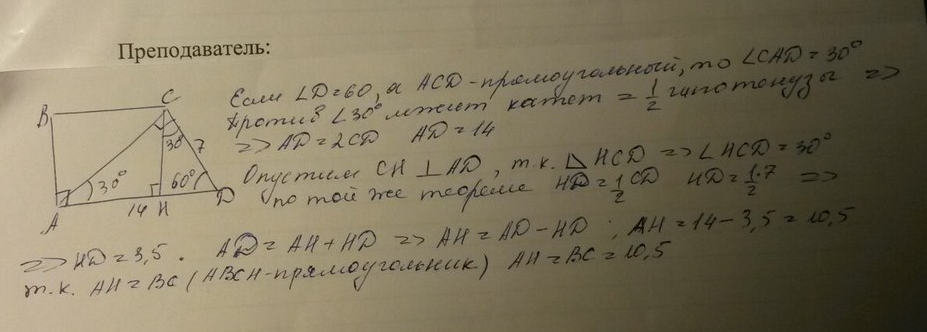 Преподаватель:
Если ∠D=60, а ACD-прямоугольный, то ∠CAD=30°
Против ∠30° лежит катет = 1/2 гипотенузы =>
=> AD=2CD AD=14
Опустим CH⊥AD, т.к. ⊿HCD => ∠HCD=30°
по той же теореме HD=1/2 CD HD=1/2·7 =>
=> HD=3,5. AD=AH+HD => AH=AD-HD; AH=14-3,5=10,5
т.к. AH=BC (ABCH-прямоугольник) AH=BC=10,5
B C
30° 7
30° 60°
A 14 H D